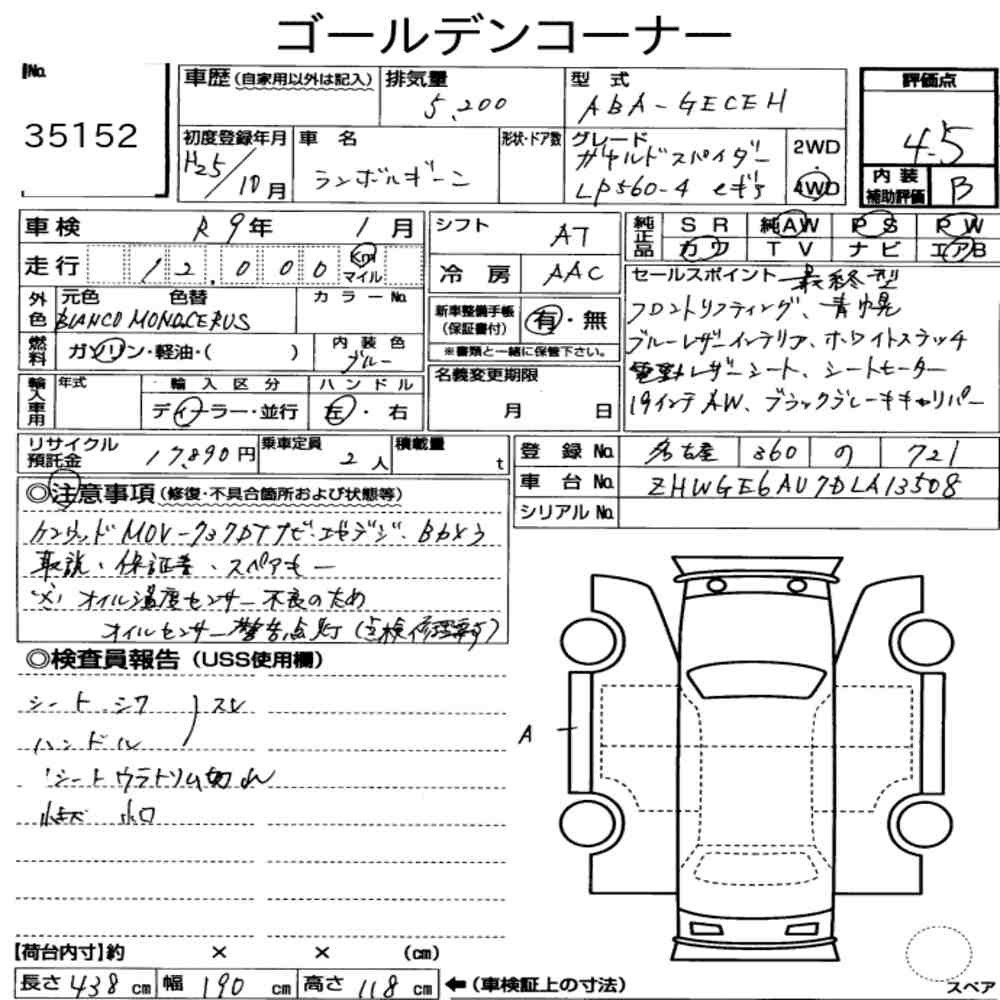 ゴールデンコーナー
No.
35152
車歴 (自家用以外は記入)
排気量
5,200
型式
ABA-GECEH
評価点
4.5
初度登録年月
H25/10月
車名
ランボルギーニ
形状・ドア数
グレード
ガヤルドスパイダー
LP560-4 eギア
2WD
4WD
内装
補助評価
B
車検
R9年 1月
シフト
AT
純正品
SR 純AW PS PW
カワ TV ナビ エアB
走行
12,000
Km
マイル
冷房
AAC
セールスポイント
最終型
フロントリフティング、青幌
ブルーレザーインテリア、ホワイトステッチ
電動レザーシート、シートヒーター
19インチAW、ブラックブレーキキャリパー
外色
元色 色替
カラーNo.
BIANCO MONOCERUS
新車整備手帳
(保証書付)
有・無
※書類と一緒に保管下さい。
燃料
ガソリン・軽油・( )
内装色
ブルー
名義変更期限
月 日
輸入車用
年式
輸入区分
ディーラー・並行
ハンドル
左・右
リサイクル
預託金
17,890円
乗車定員
2人
積載量
t
登録No.
名古屋 360 の 721
車台No.
ZHWGE6AU7DLA13508
シリアルNo.
◎注意事項 (修復・不具合箇所および状態等)
ケンウッドMDV-737DTナビ・エセデジ・Bカメラ
取説・保証書・スペアキー
※) オイル温度センサー不良のため
オイルセンサー警告点灯(点検修理要す)
◎検査員報告 (USS使用欄)
シート シワ ) スレ
ハンドル
シートウラトリム切れ
A
【荷台内寸】約 × × (cm)
長さ 438 cm 幅 190 cm 高さ 118 cm ←(車検証上の寸法)
スペア